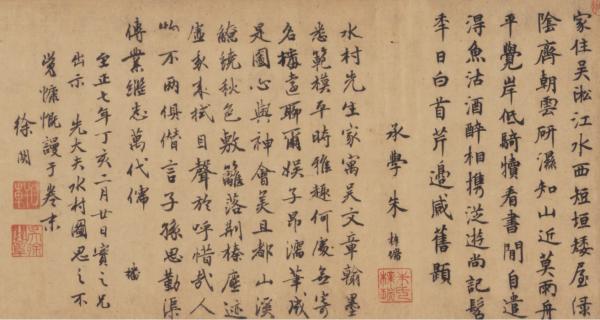 家住吳淞江水西短垣矮屋綠
陰齊朝雲研濕知山近莫雨舟
平覺岸低騎犢看書閒自遣
得魚沽酒醉相携從遊尚記髫
年日白首芹邊感舊題
承學朱
水村先生家寓吳文章翰墨
悉範模平時雅趣何處無寄
名畫聊爾娱子昂濡筆成
是圖心與神會美且都山溪
繚繞秋色敷籬落荆榛塵迹
虛我來拭目聲於呼惜哉人
物不兩俱僭言子孫思勤渠
傳業繼志萬代儒
至正七年丁亥二月廿日實之兄
出示 先大夫水村圖思之不
覺慷慨謾于卷末
徐關